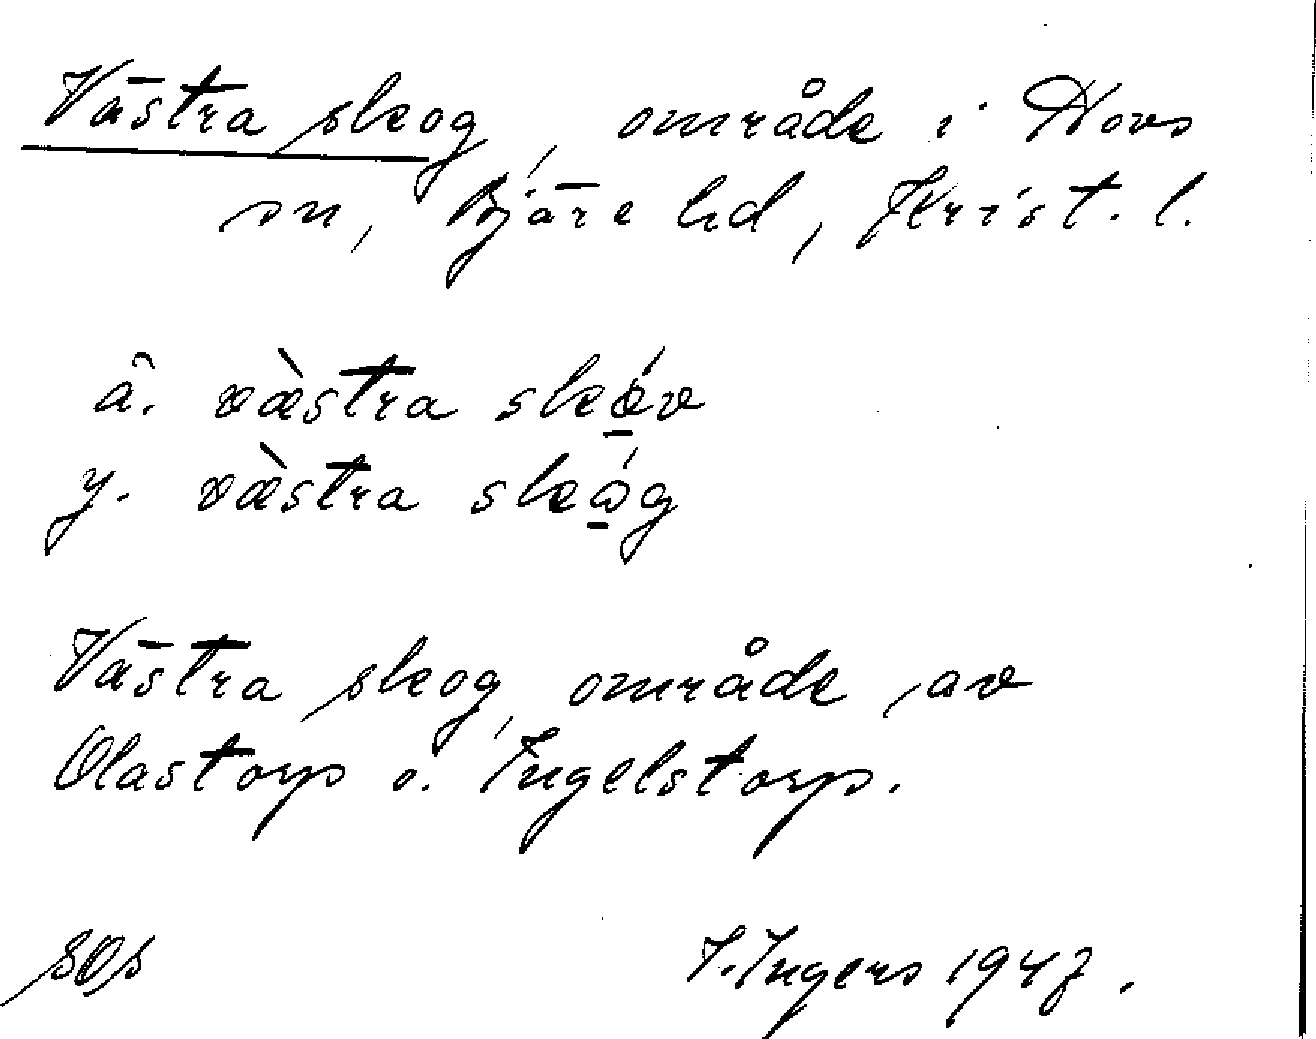 Västra skog, område i Hovs
sn, Bjäre hd, Krist. l.
ä. væ̀stra skǿv
y. væ̀stra skǿg
Västra skog, område av
Olastorp o. Ingelstorp.
SOS I. Ingers 1947.